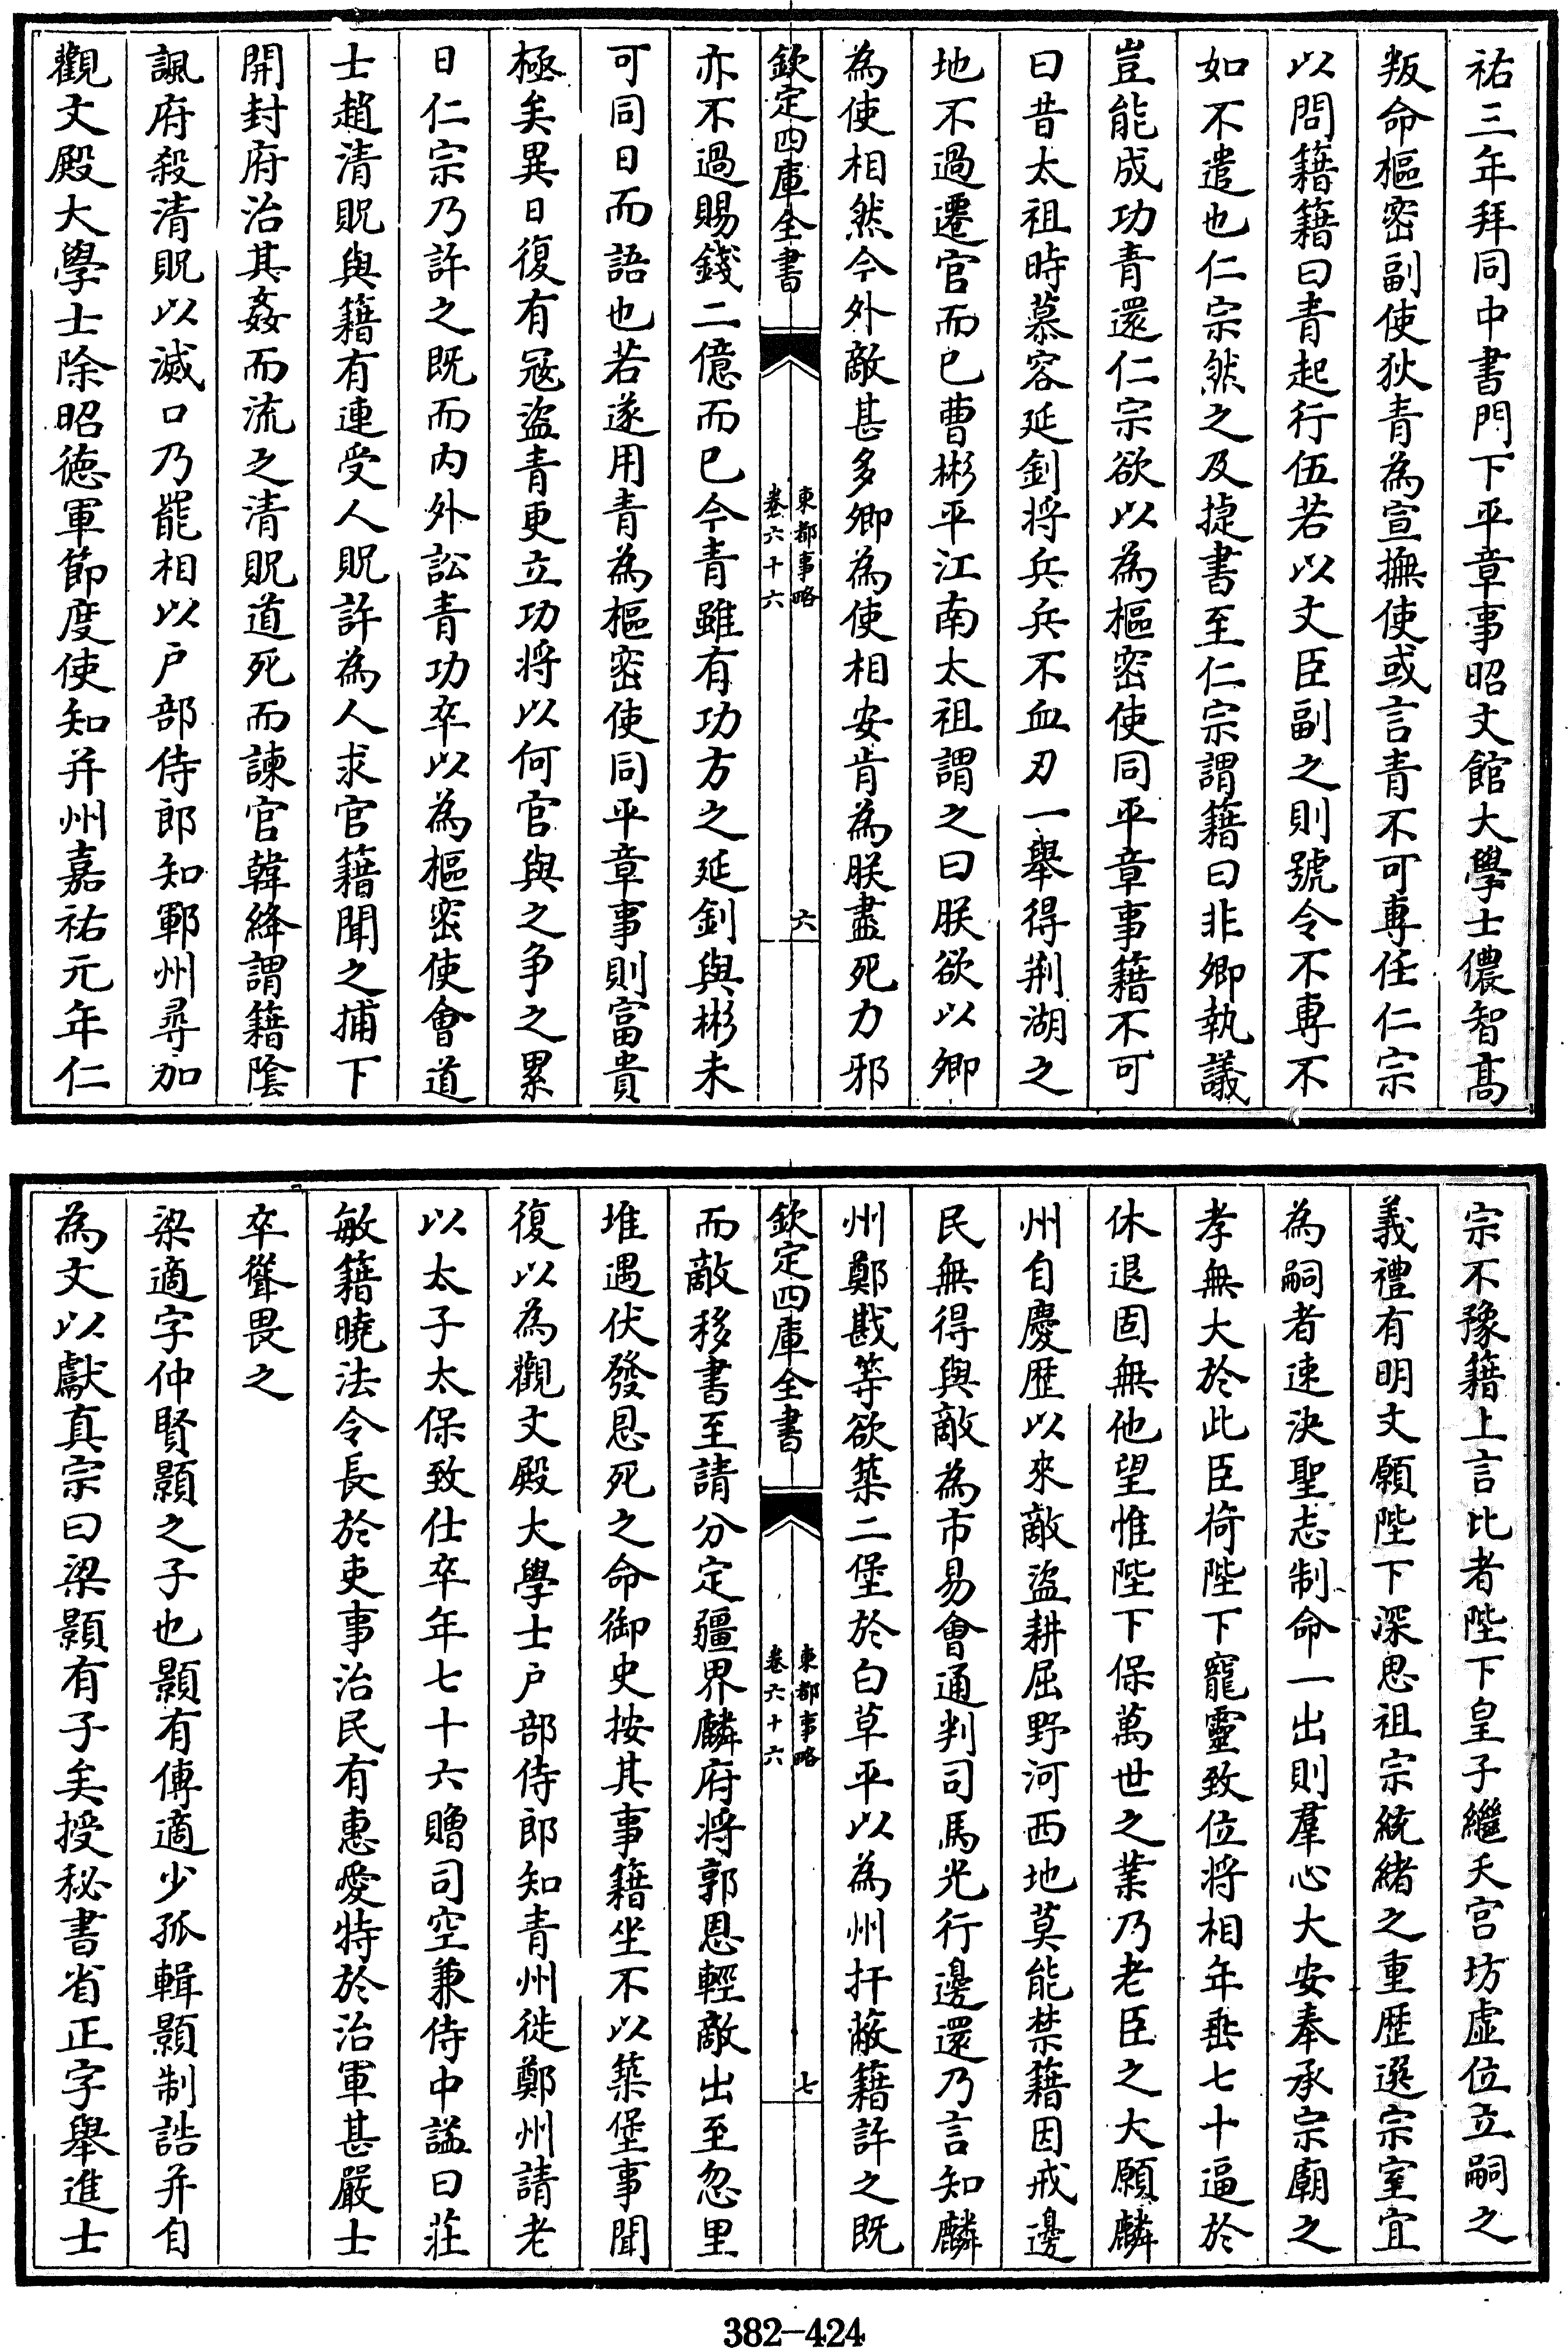 祐三年拜同中書門下平章事昭文館大學士儂智髙
叛命樞密副使狄青為宣撫使或言青不可專任仁宗
以問籍籍曰青起行伍若以文臣副之則號令不專不
如不遣也仁宗然之及㨗書至仁宗謂籍曰非卿執議
豈能成功青還仁宗欲以為樞密使同平章事籍不可
曰昔太祖時慕容延釗將兵兵不血刃一舉得荆湖之
地不過遷官而已曹彬平江南太祖謂之曰朕欲以卿
為使相然今外敵甚多卿為使相安肯為朕盡死力邪
欽定四庫全書
東都事略
卷六十六
六
亦不過賜錢二億而已今青雖有功方之延釗與彬未
可同日而語也若遂用青為樞密使同平章事則富貴
極矣異日復有冦盜青更立功將以何官與之争之累
日仁宗乃許之既而内外訟青功卒以為樞密使會道
士趙清貺與籍有連受人貺許為人求官籍聞之捕下
開封府治其姦而流之清貺道死而諫官韓絳謂籍隂
諷府殺清貺以滅口乃罷相以户部侍郎知鄆州尋加
觀文殿大學士除昭徳軍節度使知并州嘉祐元年仁
宗不豫籍上言比者陛下皇子繼夭宫坊虚位立嗣之
義禮有明文願陛下深思祖宗統緒之重歴選宗室宜
為嗣者速決聖志制命一出則羣心大安奉承宗廟之
孝無大於此臣荷陛下寵靈致位將相年垂七十逼於
休退固無他望惟陛下保萬世之業乃老臣之大願麟
州自慶歴以來敵盜耕屈野河西地莫能禁籍因戒邊
民無得與敵為市易會通判司馬光行邊還乃言知麟
州鄭戡等欲築二堡於白草平以為州扞蔽籍許之既
欽定四庫全書
東都事略
卷六十六
七
而敵移書至請分定疆界麟府將郭恩輕敵出至忽里
堆遇伏發恩死之命御史按其事籍坐不以築堡事聞
復以為觀文殿大學士户部侍郎知青州徙鄭州請老
以太子太保致仕卒年七十六贈司空兼侍中諡曰莊
敏籍曉法令長於吏事治民有惠愛特於治軍甚嚴士
卒聳畏之
梁適字仲賢顥之子也顥有傳適少孤輯顥制誥并自
為文以獻真宗曰梁顥有子矣授秘書省正字舉進士
382-424